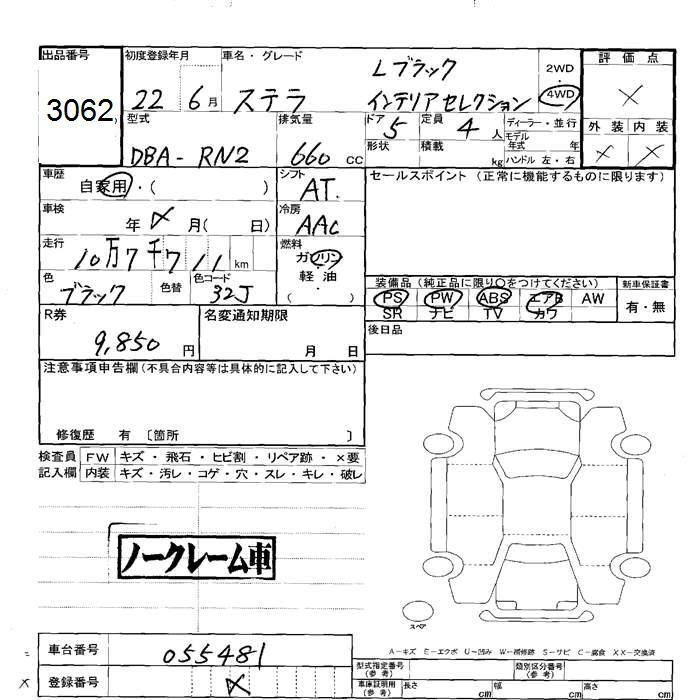 出品番号 初度登録年月 車名・グレード 評価点
3062 22 6月 ステラ Lブラック インテリアセレクション 2WD・4WD ×
型式 排気量 ドア 5 定員 4人 ディーラー・並行 外装 内装
DBA-RN2 660cc 形状 積載 kg モデル年式 年 ハンドル 左・右 × ×
車歴 自家用・( ) シフト AT セールスポイント (正常に機能するものに限ります)
車検 年 × 月( 日) 冷房 AAC
走行 10万7千711km 燃料 ガソリン・軽油・( )
色 ブラック 色替 色コード 32J
装備品 (純正品に限り○をつけてください) 新車保証書
PS PW ABS エアB AW 有・無
SR ナビ TV カワ
R券 9,850円 名変通知期限 月 日 後日品
注意事項申告欄(不具合内容等は具体的に記入して下さい)
修復歴 有 〔箇所 〕
検査員 FW キズ・飛石・ヒビ割・リペア跡・×要
記入欄 内装 キズ・汚レ・コゲ・穴・スレ・キレ・破レ
ノークレーム車
スペア
A-キズ E-エクボ U-凹み W-補修跡 S-サビ C-腐食 XX-交換済
車台番号 055481
登録番号 ×
型式指定番号(参考) 類別区分番号(参考)
車庫証明用(参考) 長さ cm 幅 cm 高さ cm